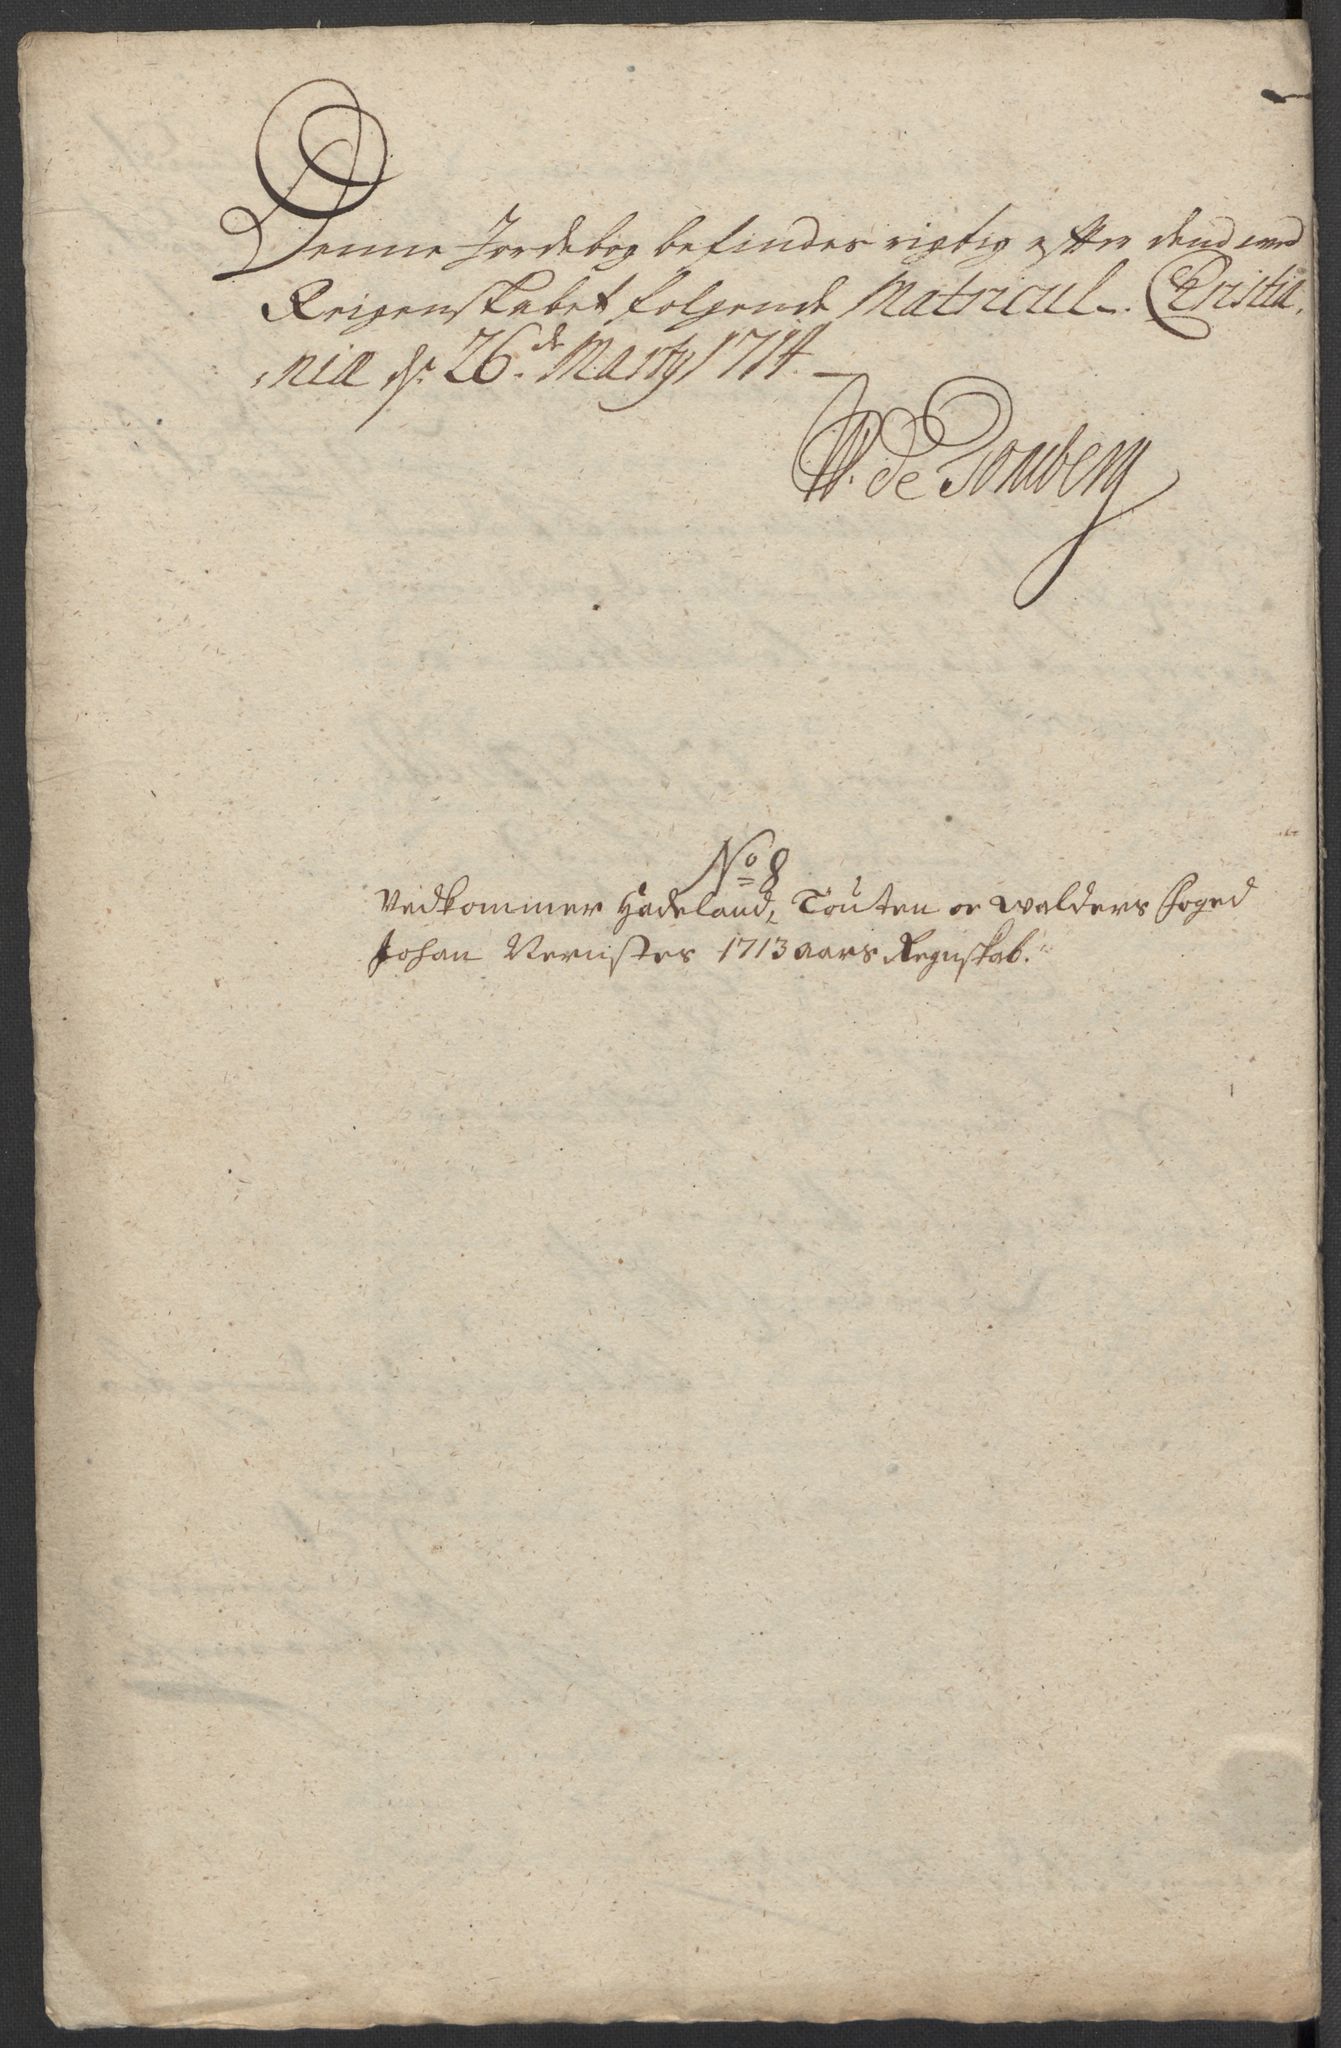 Denne Jordebog befindes rigtig efter dend med
Reigenskabet folgende Matricul. Christia,
,niæ dr. 26de Marty 1714.
W. de Tonsberg
No 8
Vedkommer Hadeland, Touten oc Walders foged
Johan Vernistes 1713 aars Regnskab.